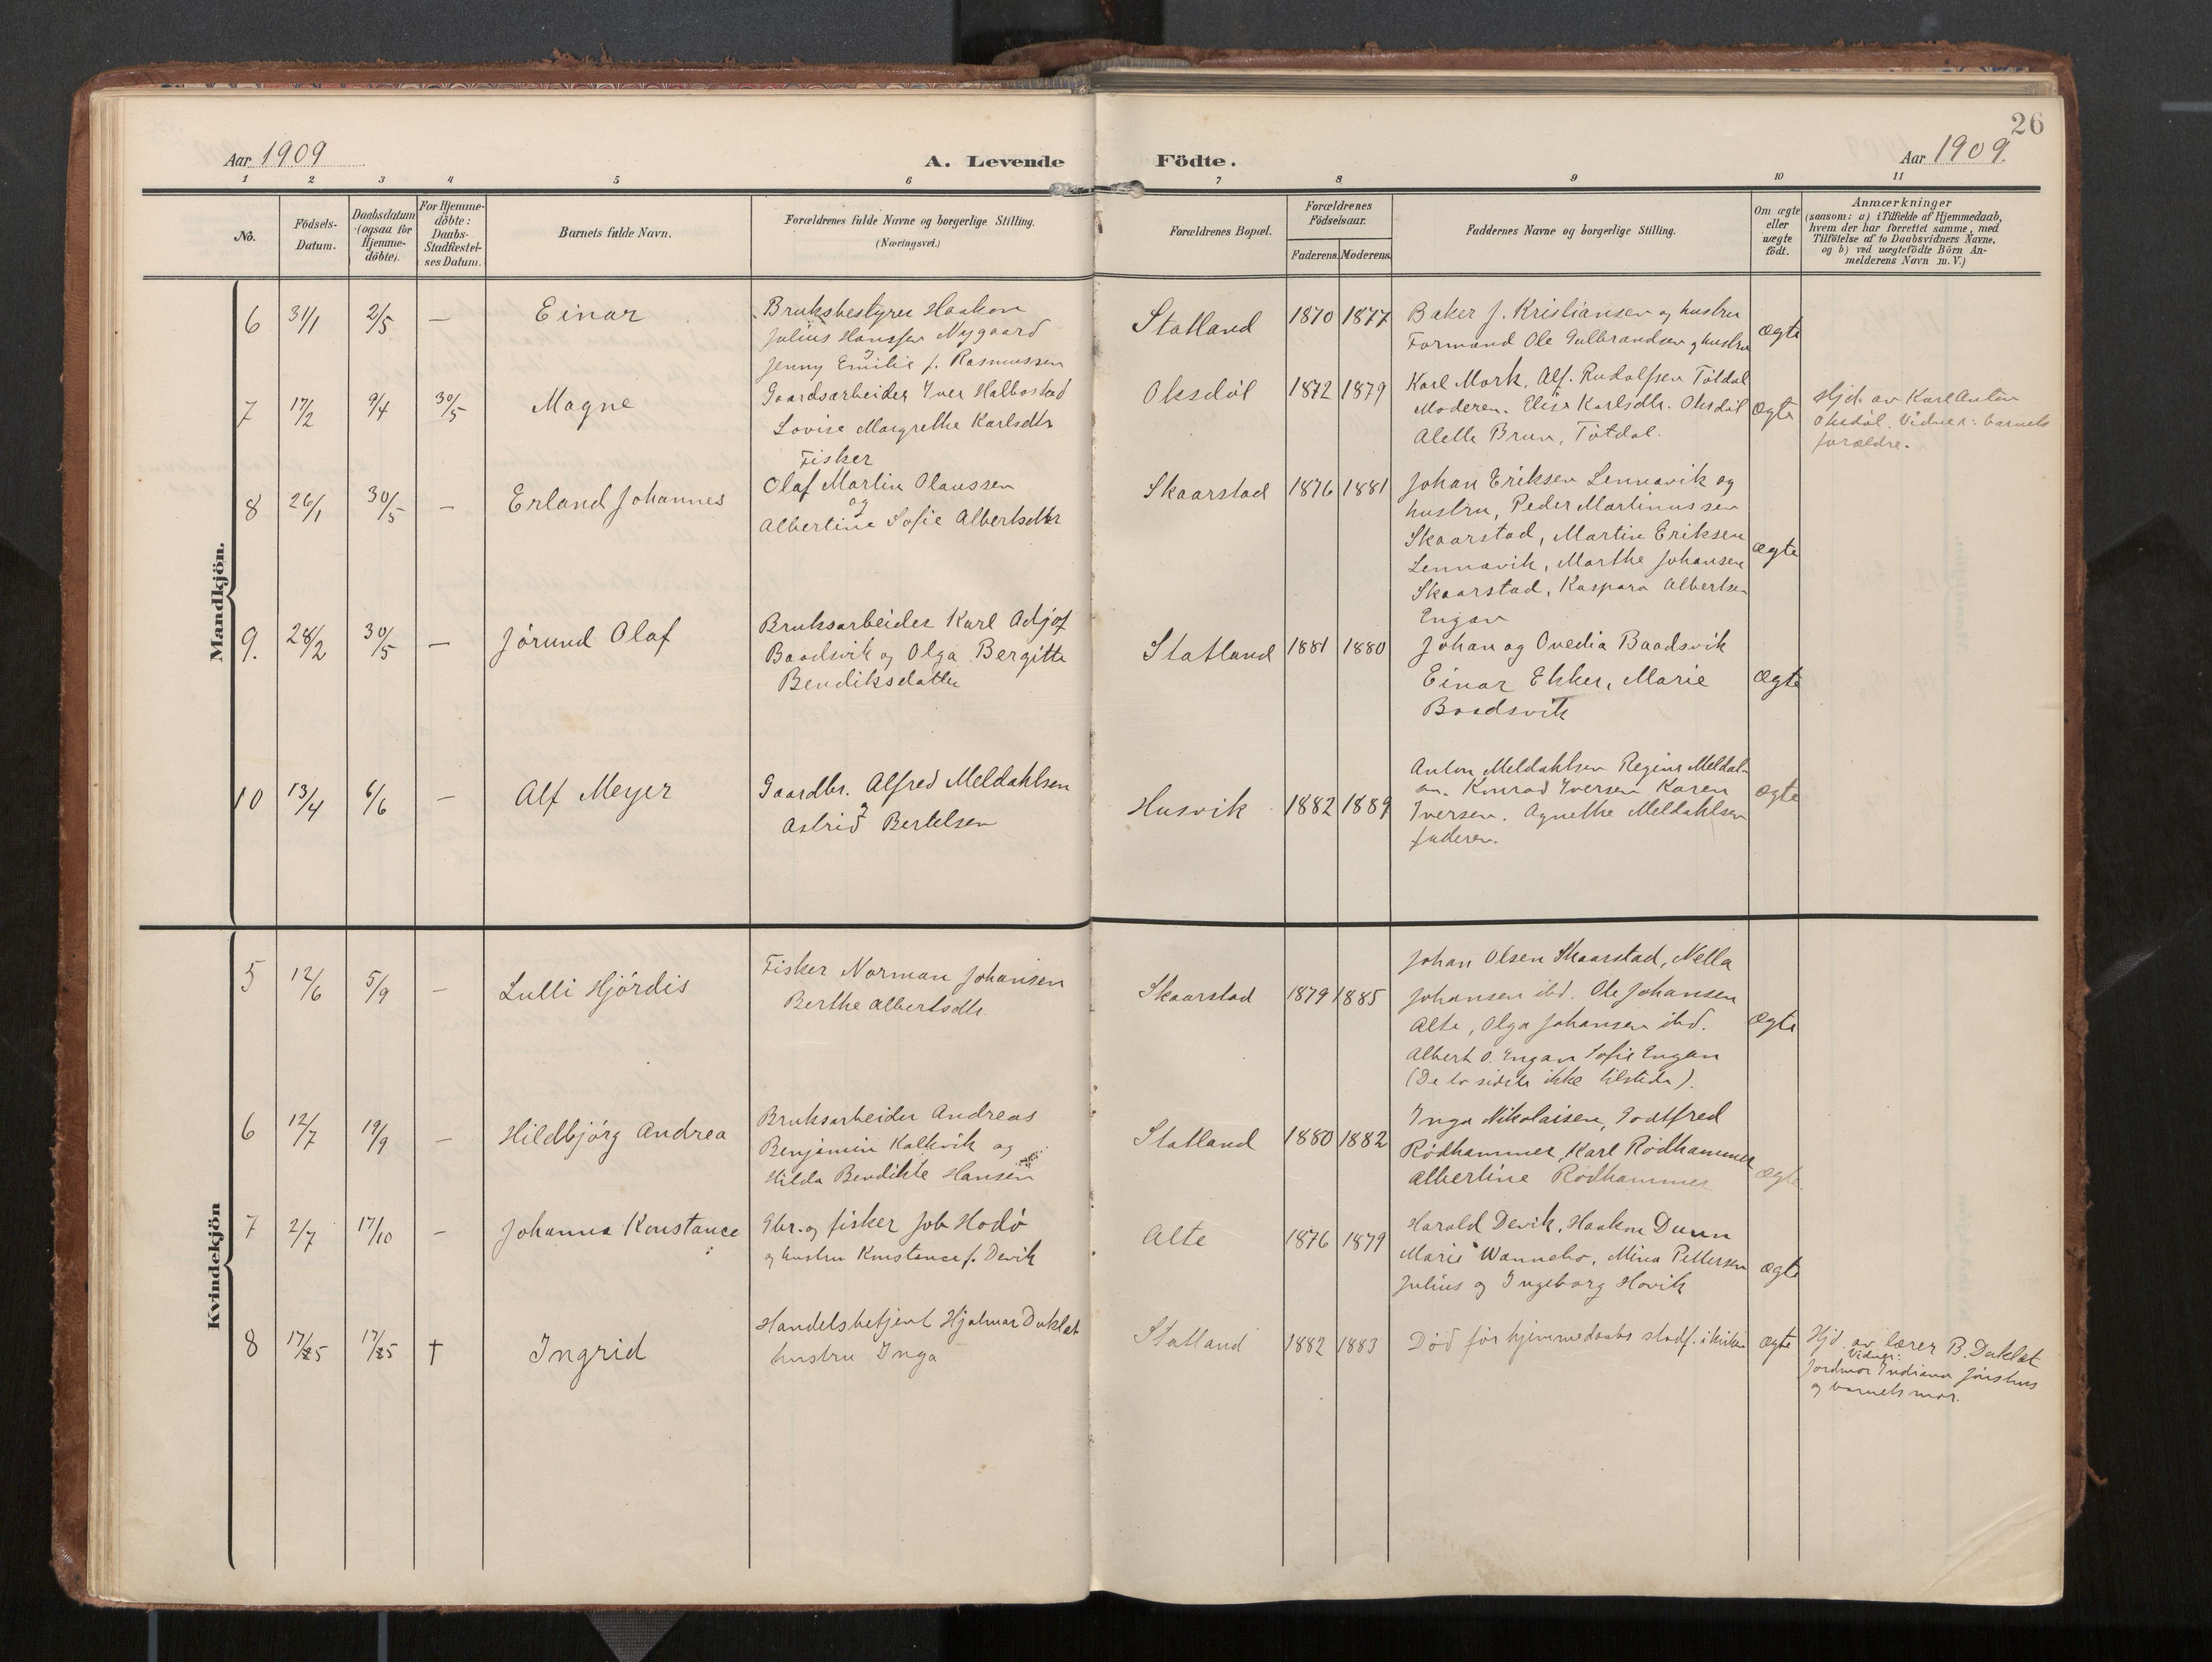 26
Aar 1909
A. Levende Födte.
Aar 1909.
1 2 3 4 5 6 7 8 9 10 11
No.
Födsels-
Datum.
Daabsdatum
(ogsaa for
Hjemme-
döbte).
For Hjemme-
döbte:
Daabs-
Stadfæstel-
ses Datum.
Barnets fulde Navn.
Forældrenes fulde Navne og borgerlige Stilling.
(Næringsvei.)
Forældrenes Bopæl.
Forældrenes
Födselsaar.
Faderens. Moderens.
Faddernes Navne og borgerlige Stilling.
Om ægte
eller
uægte
födt.
Anmærkninger
(saasom: a) i Tilfælde af Hjemmedaab,
hvem der har forrettet samme, med
Tilföielse af to Daabsvidners Navne,
og b) ved uægtefödte Börn An-
melderens Navn m. V.)
Mandkjön.
6 31/1 2/5 — Einar
Bruksbestyrer Haakon
Julius Hanssen Nygaard
og
Jenny Emilie f. Rasmussen
Statland 1870 1877
Baker J. Kristiansen og hustru
Formand Ole Gulbrandsen og hustru
ægte
7 17/2 9/4 30/5 Magne
Gaardsarbeider Iver Halbostad
Lovise Margrethe Karlsdtr
Oksdøl 1872 1879
Karl Mork, Alf. Rudolfsen Tøtdal
Moderen. Elise Karlsdtr. Oksdøl
Alette Brun, Tøtdal.
ægte
Hjd. av Karl Anton
Oksdøl. Vidner: barnets
forældre.
8 26/1 30/5 — Erland Johannes
Fisker
Olaf Martin Olaussen
og
Albertine Sofie Albertsdtr
Skaarstad 1876 1881
Johan Eriksen Lennavik og
hustru, Peder Martinussen
Skaarstad, Martin Eriksen
Lennavik, Marthe Johansen
Skaarstad, Kaspara Albertsen
Engan
ægte
9. 28/2 30/5 — Jørund Olaf
Bruksarbeider Karl Adjof
Baadsvik og Olga Bergitte
Bendiksdatter
Statland 1881 1880
Johan og Ovedia Baadsvik
Einar Ekker, Marie
Baadsvik
ægte
10 13/4 6/6 — Alf Meyer
Gaardbr. Alfred Meldahlsen
og
Astrid Bertelsen
Husvik 1882 1889
Anton Meldahlsen Regine Meldal-
sen. Konrad Iversen Karen
Iversen. Agnethe Meldahlsen
faderen.
ægte
Kvindekjön
5 12/6 5/9 — Lulli Hjørdis
Fisker Norman Johansen
Berthe Albertsdtr.
Skaarstad 1879 1885
Johan Olsen Skaarstad, Nella
Johansen ibd. Ole Johansen
Alte, Olga Johansen ibd.
Albert O. Engan Sofie Engan
(De to sidste ikke tilstede).
ægte
6 12/7 19/9 — Hildbjørg Andrea
Bruksarbeider Andreas
Benjamin Kalkvik og
Hilda Bendikte Hansen
Statland 1880 1882
Inga Nikolaisen, Godtfred
Rødhammer, Karl Rødhammer
Albertine Rødhammer
ægte
7 2/7 17/10 — Johanna Konstance
Gbr. og fisker Job Hodø
og hustru Konstance f. Devik
Alte 1876 1879
Harald Devik, Haakon Dunn
Marie Wannebo, Mina Pettersen
Julius og Ingeborg Hovik
ægte
8 17/5 17/5 † Ingrid
Handelsbetjent Hjalmar Duklæt
hustru Inga
Statland 1882 1883
Død før hjemmedaabs stadf. i kirken
ægte
Hjd. av lærer B. Duklæt
Vidner:
Jordmor Indiana Jørshus
og barnets mor.